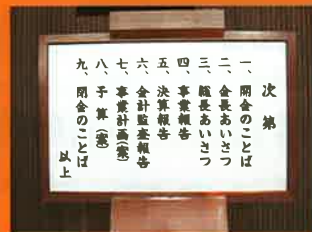 次第
一、開会のことば
二、会長あいさつ
三、総長あいさつ
四、事業報告
五、決算報告
六、会計監査報告
七、事業計画(案)
八、予算(案)
九、閉会のことば
以上